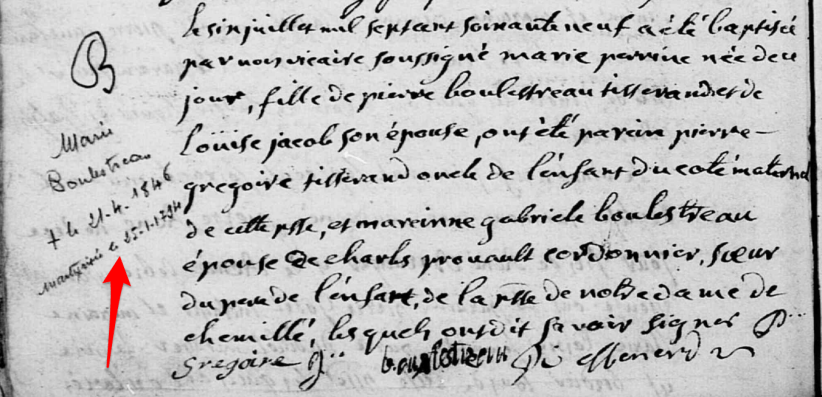 B
Marie
Boulestreau
+ le 21-4-1846
martyrisée le 25-1-1794
le six juillet mil sept cent soixante neuf a été baptisée
par nous vicaire soussigné marie perrine née de ce
jour, fille de pierre boulestreau tisserand et de
Loüise jacob son épouse, ont été parein pierre
gregoire tisserand oncle de l'enfant du coté maternel
de cette psse, et mareinne gabriele boulestreau
épouse de charls prouault cordonnier, sœur
du pere de l'enfant, de la psse de notre dame de
chemillé, lesquels ont dit savoir signer P..
Gregoire g.. boulestreau